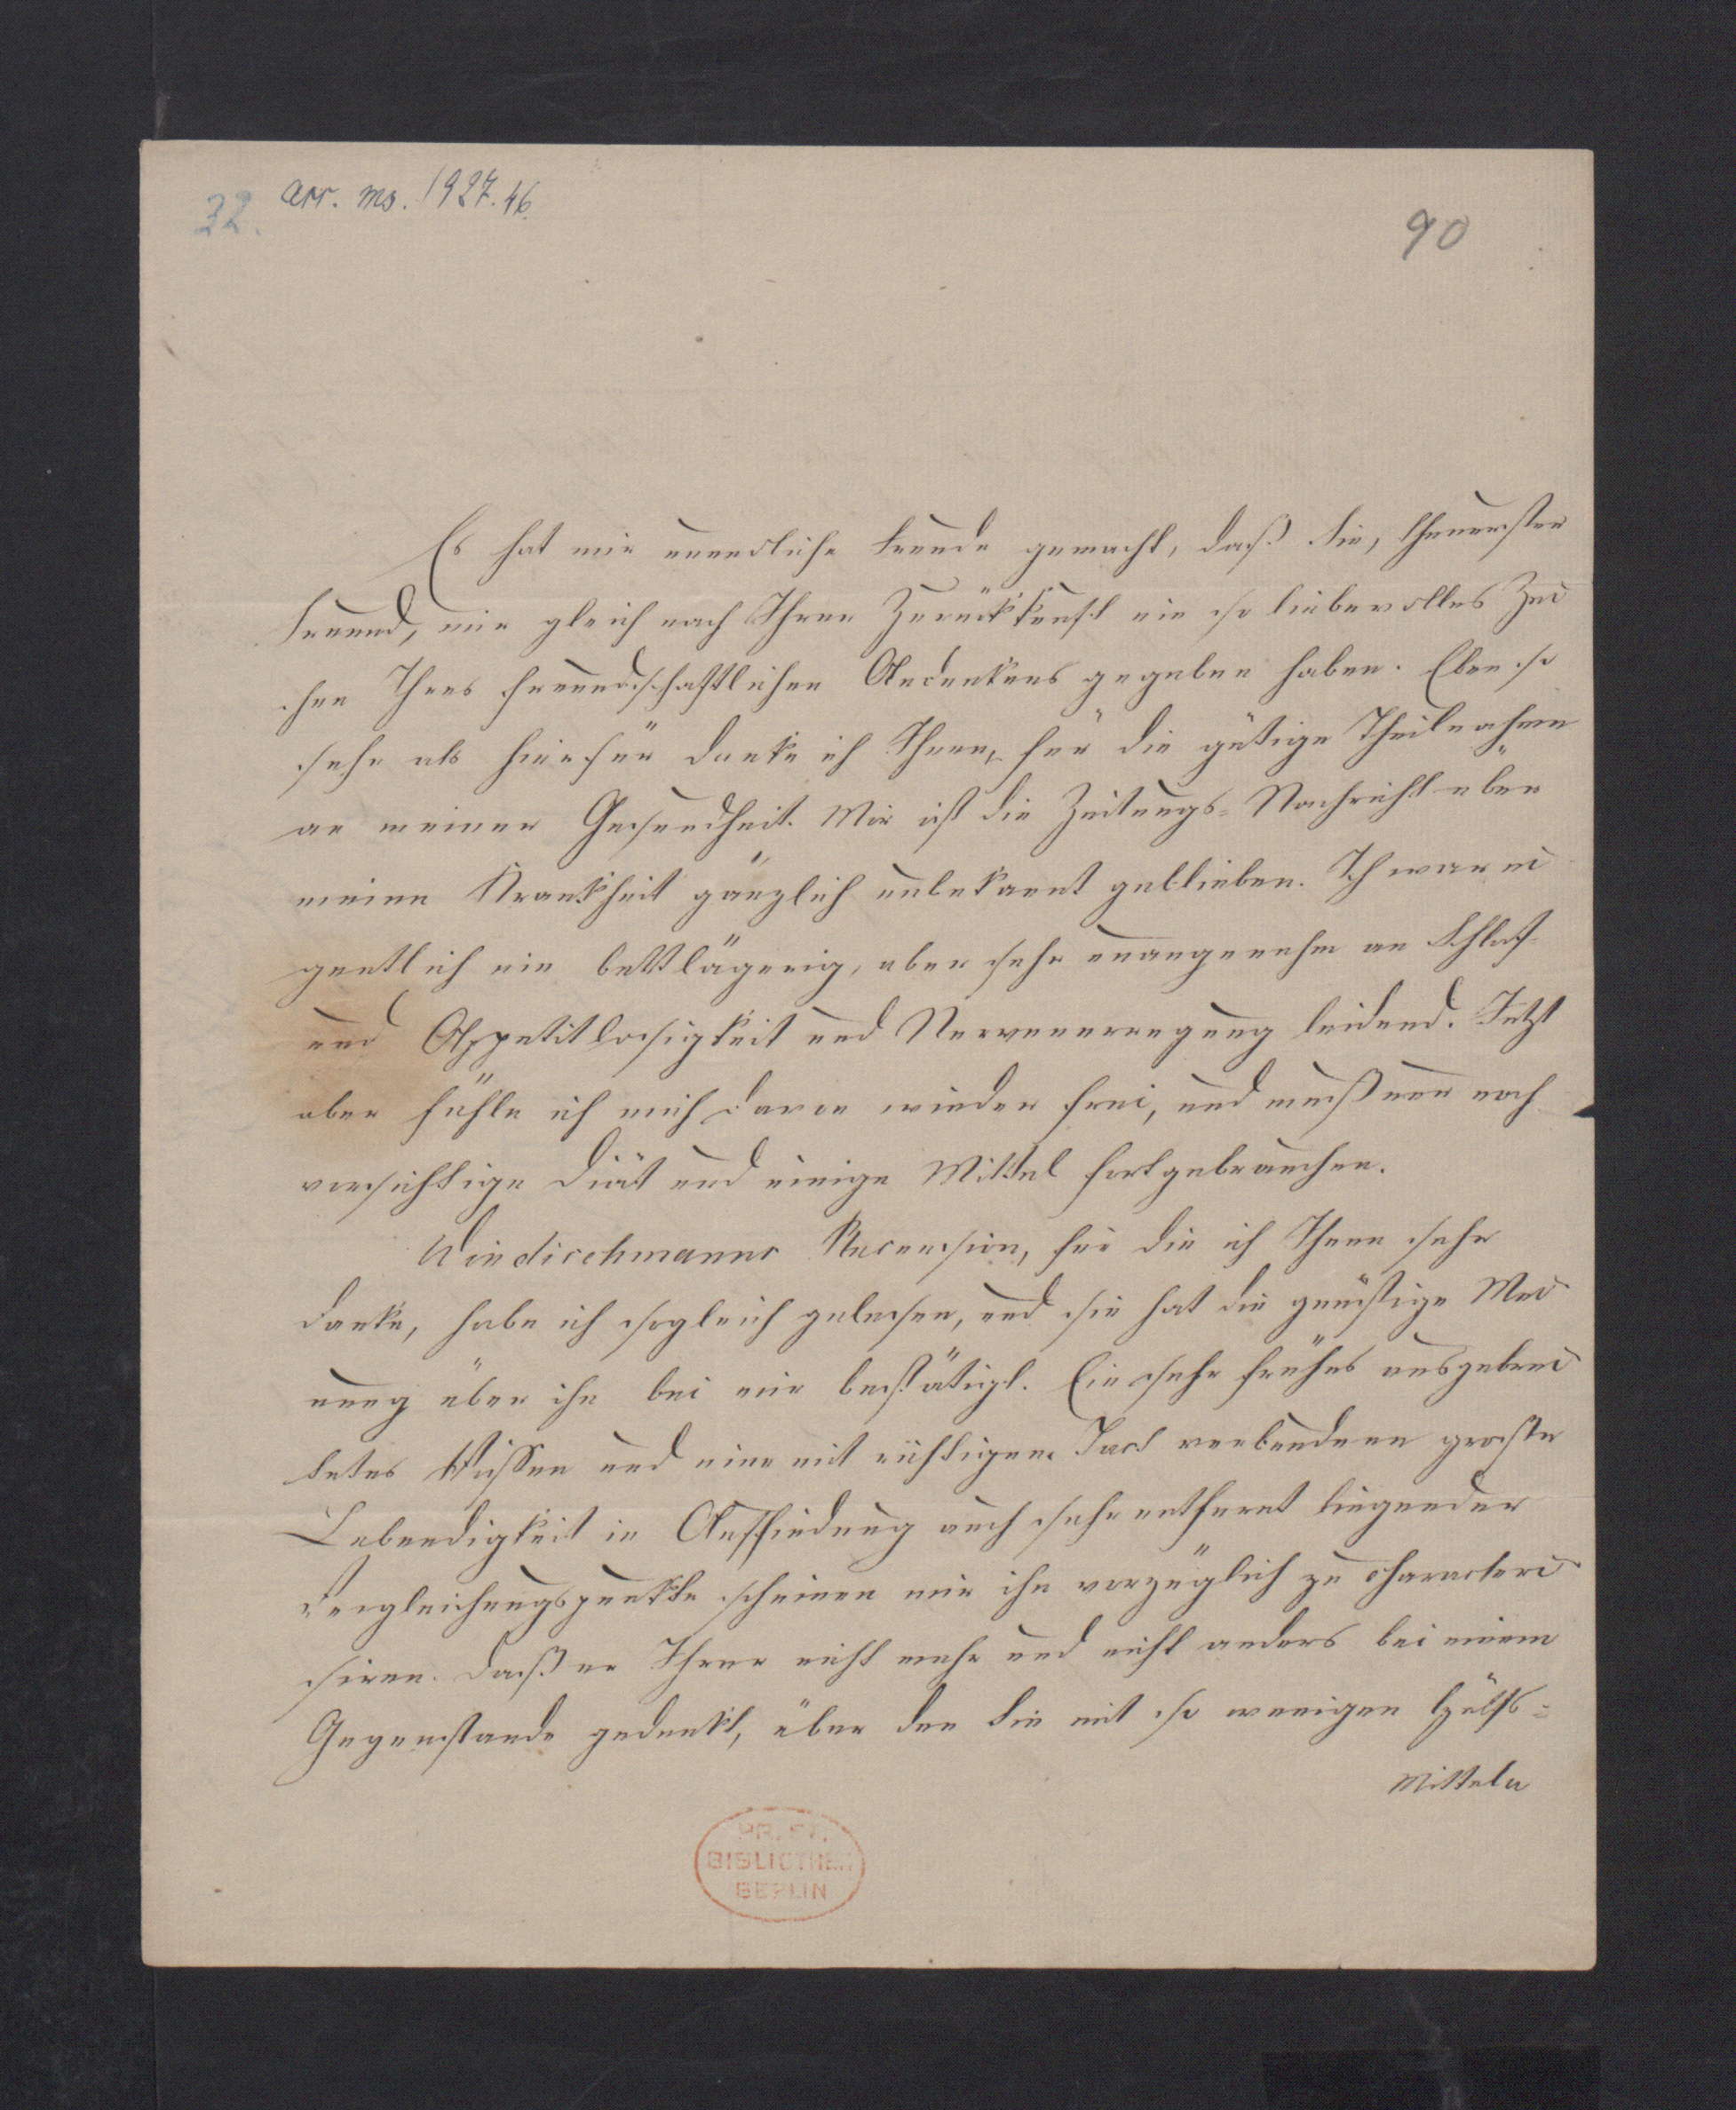 32. acc. ms. 1927. 46.
90
Es hat mir unendliche Freude gemacht, daß Sie, theuerster
Freund, mir gleich nach Ihrer Zurückkunft ein so liebevolles Zei
chen Ihres freundschaftlichen Andenkens gegeben haben. Eben so
sehr als hierfür danke ich Ihnen, für die gütige Theilnahme
an meiner Gesundheit. Mir ist die Zeitungs-Nachricht über
meine Krankheit gänzlich unbekannt geblieben. Ich war ei
gentlich nie bettlägerig, aber sehr unangenehm an Schlaf-
und Appetitlosigkeit und Nervenerregung leidend. Jetzt
aber fühle ich mich davon wieder frei, und muß nur noch
vorsichtige Diät und einige Mittel fortgebrauchen.
Windischmanns Recension, für die ich Ihnen sehr
danke, habe ich sogleich gelesen, und sie hat die günstige Mei
nung über ihn bei mir bestätigt. Ein sehr frühes ausgebrei
tetes Wissen und eine mit richtigem Tact verbundene große
Lebendigkeit in Auffindung auch sehr entfernt liegender
Vergleichungspunkte scheinen mir ihn vorzüglich zu characteri
siren. Daß er Ihrer nicht mehr und nicht anders bei einem
Gegenstande gedenkt, über den Sie mit so wenigen Hülfs-
Mitteln
PR. ST.
BIBLIOTHEK
BERLIN